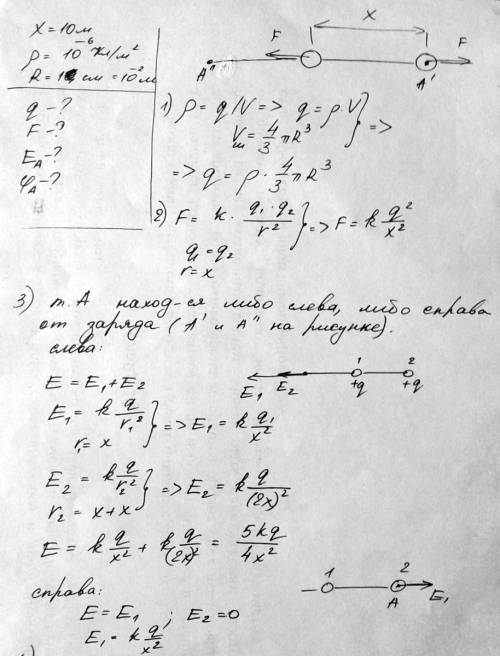 x = 10м
ρ = 10⁻⁶ Кл/м²
R = 1 см = 10⁻² м
q - ?
F - ?
E_A - ?
φ_A - ?
x
F
F
A"
A'
1) ρ = q/V => q = ρ·V
V_ш = 4/3 πR³ } =>
=> q = ρ · 4/3 πR³
2) F = k · q₁·q₂/r² } => F = k q²/x²
q₁ = q₂
r = x
3) т. А наход-ся либо слева, либо справа
от заряда (А' и А" на рисунке).
слева:
E₁ E₂ 1 +q 2 +q
E = E₁ + E₂
E₁ = k q/r₁² } => E₁ = k q₁/x²
r₁ = x
E₂ = k q/r₂² } => E₂ = k q/(2x)²
r₂ = x + x
E = k q/x² + k q/(2x)² = 5kq/4x²
справа:
1 2 A E₁
E = E₁ ; E₂ = 0
E₁ = k q/x²